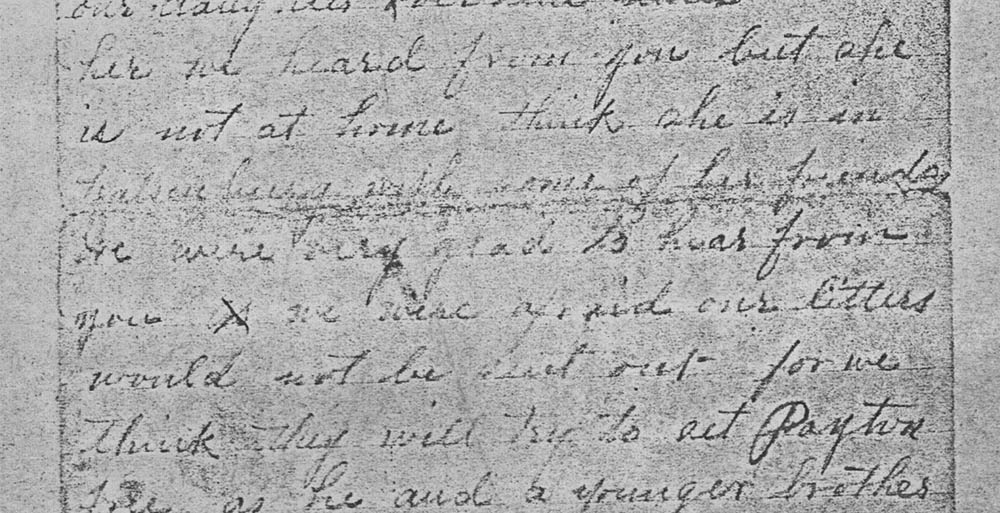 our
her we heard from you but she
is not at home think she is in
with some of her friends
We were very glad to hear from
you we were afraid our letters
would not be sent out for we
think they will try to set Payton
free as he and a younger brother